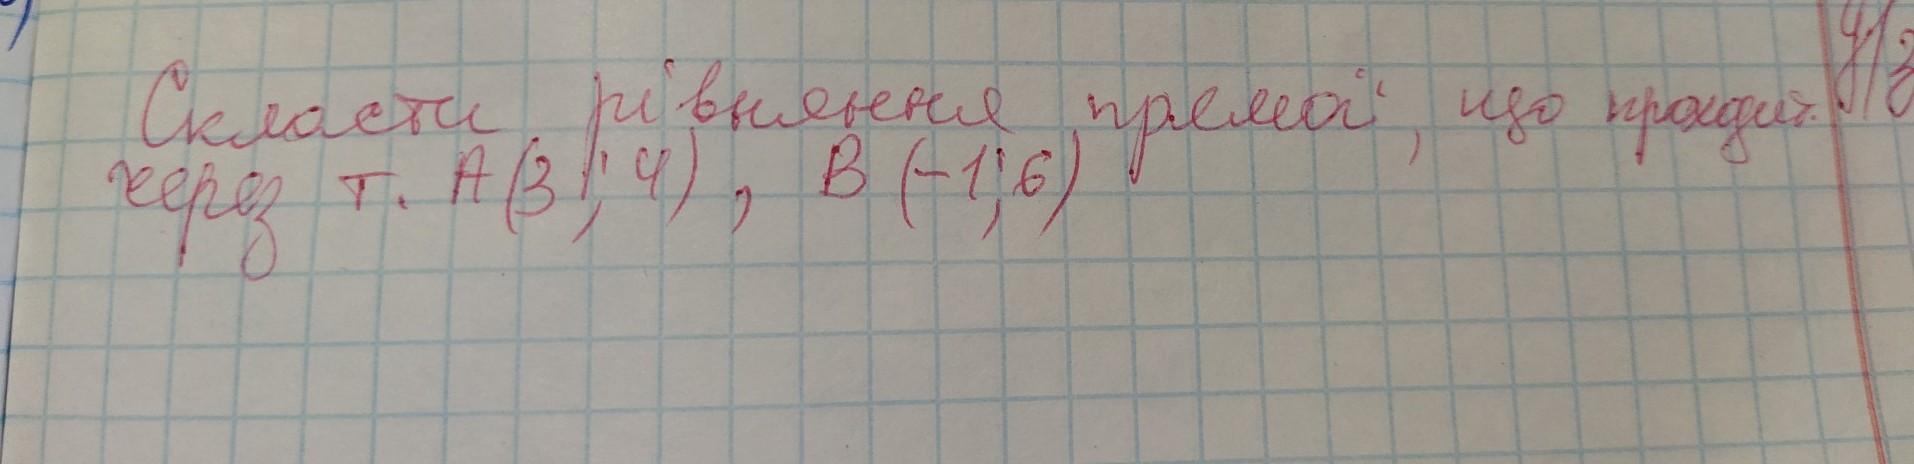 Скласти рівняння прямої, що проходит.
через т. А(3 ; 4) , В (-1; 6)
у/з